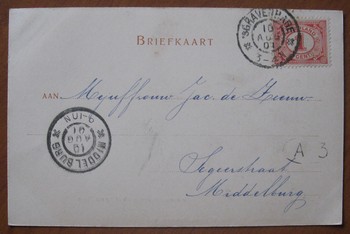 'SGRAVENHAGE
10
AUG
01
BRIEFKAART
1
CENT
AAN Mejuffrouw Jac. de
MIDDELBURG
10
AUG
01
6-10N
A 3
Segeerstraat
Middelburg.